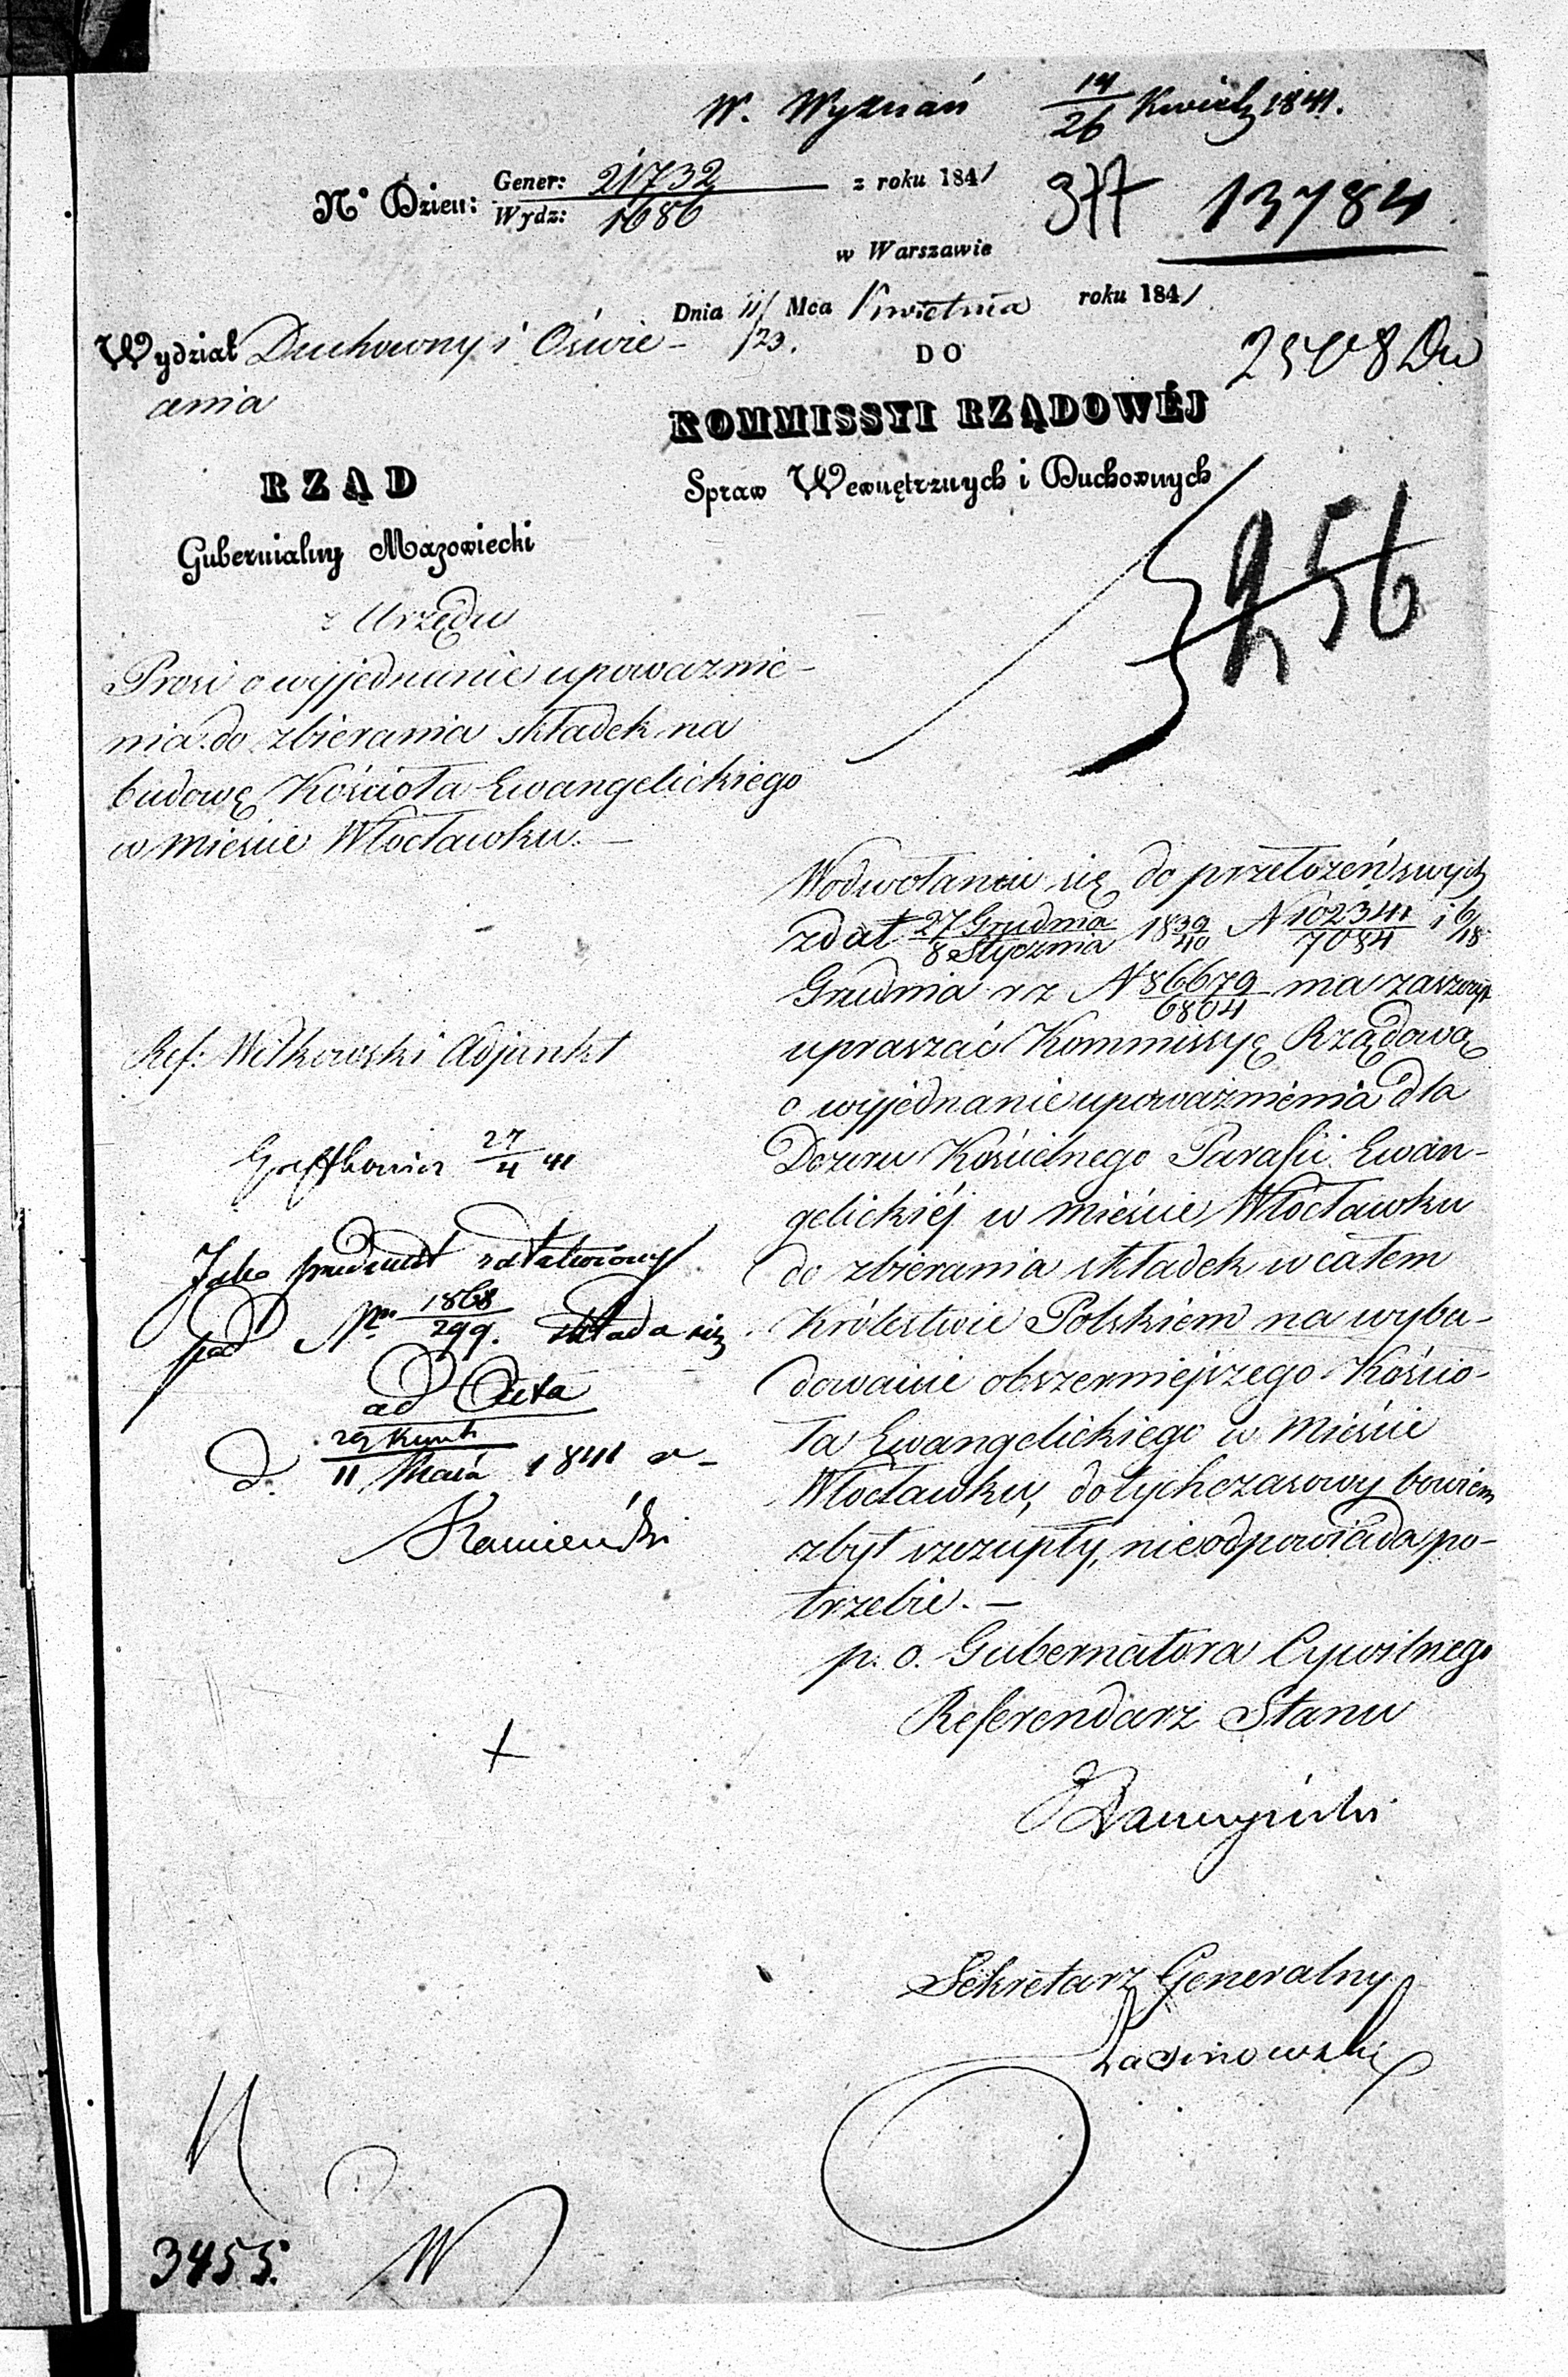 W. Wyznań 14/26 Kwietn 1841.
No Dzien: Gener: 21732 / Wydz: 1686 z roku 1841
377 13784
w Warszawie
Dnia 11/23. Mca Kwietnia roku 1841
Wydział Duchowny i Oświe-
cenia
DO
2508 Du
KOMMISSYI RZĄDOWÉJ
Spraw Wewnętrznych i Duchownych
RZĄD
Gubernialny Mazowiecki
256
z Urzędu
Prosi o wyjednanie upoważnie-
nia do zbierania składek na
budowę Kościoła Ewangelickiego
w mieście Włocławku. —
Wodwołaniu się do przełożeń swych
z dat 27 Grudnia / 8 Stycznia 1839/40 N 102341/7084 i 6/18
Grudnia r z N 86679/6804 ma zaszczyt
upraszać Kommissyę Rządową
o wyjednanie upoważnienia dla
Dozoru Kościelnego Parafii Ewan-
gelickiéj w mieście Włocławku
do zbierania składek w całem
Królestwie Polskiem na wybu-
dowanie obszerniejszego Kościo-
ła Ewangelickiego w Mieście
Włocławku, dotychczasowy bowiem
zbyt szczupły, nieodpowiada po-
trzebie. —
p. o. Gubernatora Cywilnego
Referendarz Stanu
Sekretarz Generalny
Ref: Witkowski Adjunkt
27/4 41
Jako przedmiot załatwiony
pod Nrm 1868/299. składa się
ad Acta
d. 29 Kwiet / 11 Maia 1841 r-
Kamieński
3455.